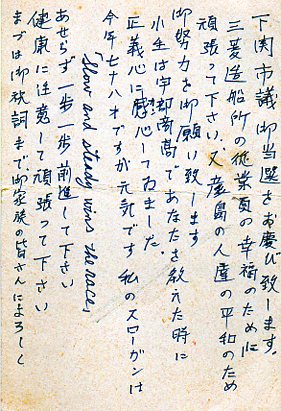 下関市議御当選をお慶び致します。
三菱造船所の従業員の幸福のために
頑張って下さい、又彦島の人達の平和のため
御努力を御願い致します
小生は宇部商高であなたを教えた時に
正義心に感心しておりました。
今年七十八才ですが元気です 私のスローガンは
Slow and steady wins the races
あせらず一歩一歩前進して下さい
健康に注意して頑張って下さい
まづは御祝詞まで御家族の皆さんによろしく